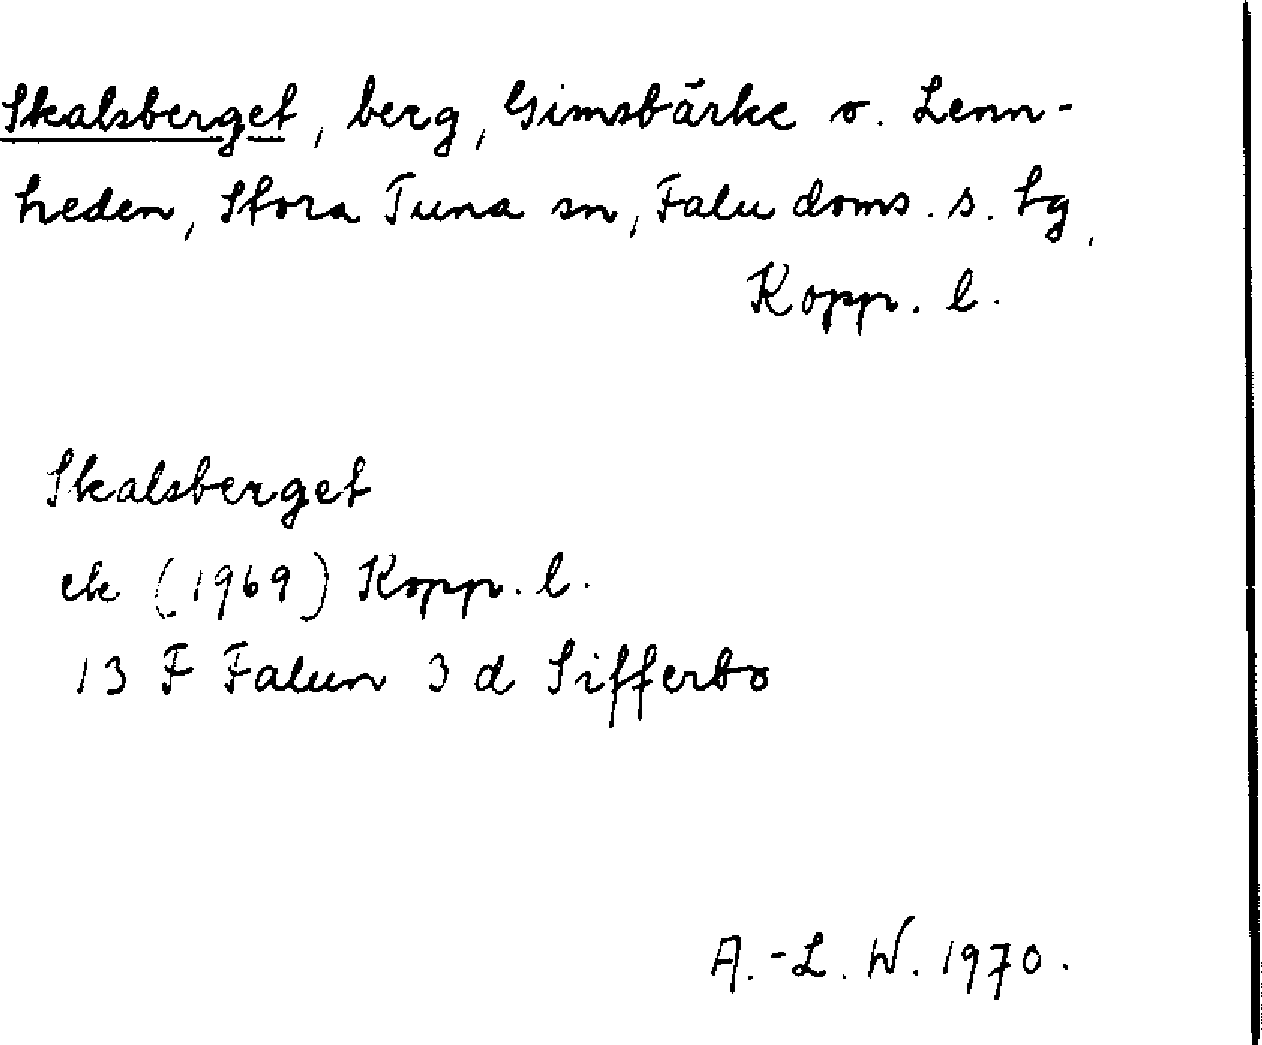 Skalsberget, berg, Gimsbärke o. Lenn-
heden, Stora Tuna sn, Falu doms. s. tg,
Kopp. l.
Skalsberget
ek (1969) Kopp. l.
13 F Falun 3 d Sifferbo
A.-L. W. 1970.